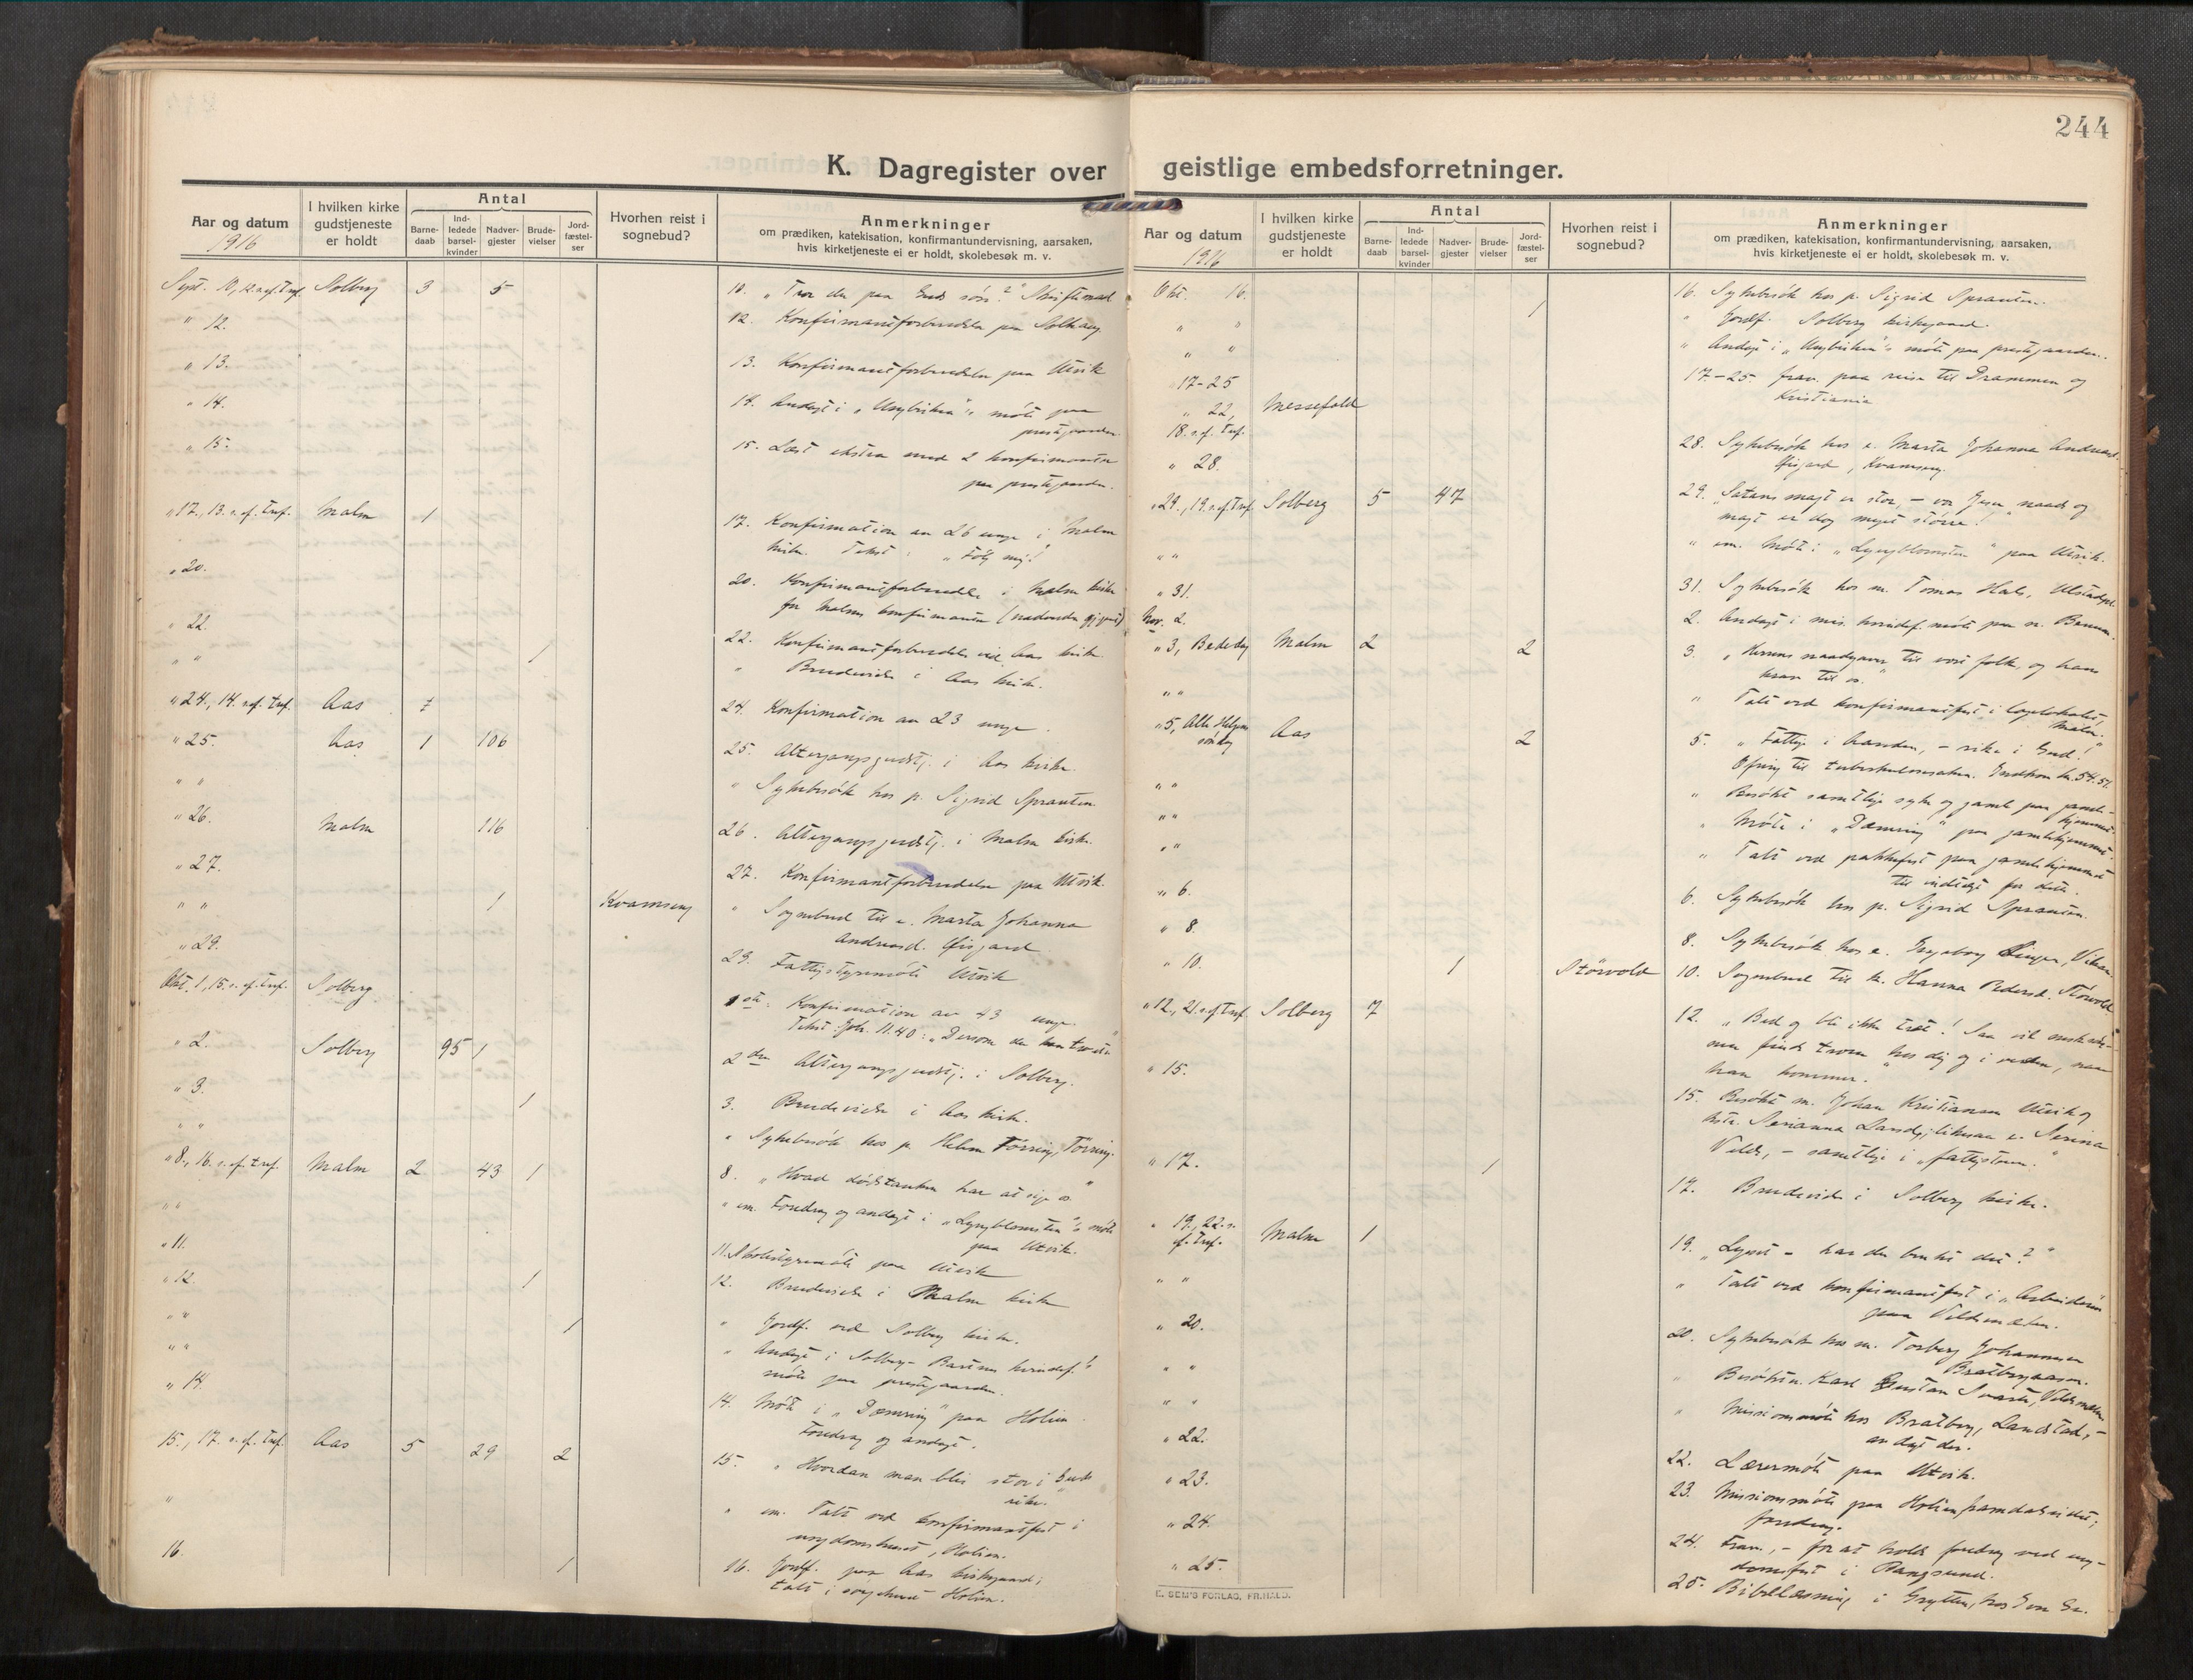 244
K. Dagregister over geistlige embedsforretninger.
Aar og datum
1916
I hvilken kirke
gudstjeneste
er holdt
Antal
Barne-
daab
Ind-
ledede
barsel-
kvinder
Nadver-
gjester
Brude-
vielser
Jord-
fæstel-
ser
Hvorhen reist i
sognebud?
Anmerkninger
om prædiken, katekisation, konfirmantundervisning, aarsaken,
hvis kirketjeneste ei er holdt, skolebesøk m. v.
Sept. 10, 12. s. ef. tref. Solberg 3 5 10. "Tror du paa Guds søn?" Skriftemaal
" 12. 12. Konfirmantforberedelse paa Solhaug
" 13. 13. Konfirmantforberedelse paa Utvik
" 14. 14. Andagt i "Ungbirken"s møte paa
prestgaarden.
" 15. 15. Læst ekstra med 2 konfirmanter
paa prestgaarden.
" 17., 13. s. ef. tref. Malm 1 17. Konfirmation av 26 unge i Malm
kirke. Tekst: "Følg mig!"
" 20. 20. Konfirmantforberedelse i Malm kirke
for Malms konfirmanter
" 22. 22. Konfirmantforberedelse ved Aas kirke.
" " 1 " Brudevielse i Aas kirke.
" 24., 14. s. ef. tref. Aas 7 24. Konfirmation av 23 unge.
" 25. Aas 1 106 25. Altergangsgudstj. i Aas kirke.
" " " Sykebesøk hos p. Sigrid Sprauten
" 26. Malm 116 26. Altergangsgudstj. i Malm kirke.
" 27. 27. Konfirmantforberedelse paa Utvik.
" " 1 Kvamseng " Sognebud til e. Marta Johanna
Andreasd. Øisgard.
" 29. 29. Fattigstyremøte Utvik
Okt. 1, 15. s. ef. tref. Solberg 1ste. Konfirmation av 43 unge.
Tekst: Joh. 11.40: "Dersom du kan tro etc"
" 2. Solberg 95 1 2den Altergangsgudstj. i Solberg.
" 3. 1 3. Brudevielse i Aas kirke.
" " " Sykebesøk hos p. Helene Tørring, Tørring.
" 8., 16. s. ef. tref. Malm 2 43 1 8. "Hvad dødstanken har at sige os"
" " " em. Foredrag og andagt i "Lyngblomsten"s møte
paa Utvik.
" 11. 11. Skolestyremøte paa Utvik
" 12. 1 12. Brudevielse i Malm kirke
" " 1 " Jordf. ved Solberg kirke.
" " " Andagt i Solberg-Bartnes kvindef.'s
møte paa prestgaarden.
" 14. 14. Møte i "Dæmring" paa Holien.
Foredrag og andagt.
15., 17. s. ef. tref. Aas 5 29 2 15. "Hvordan man blir stor i Guds
rike."
" " em. Talt ved konfirmantfest i
ungdomshuset, Holien.
16. 1 16. Jordf. paa Aas kirkegaard;
talt i sørgehuset Holien.
Aar og datum
1916
I hvilken kirke
gudstjeneste
er holdt
Antal
Barne-
daab
Ind-
ledede
barsel-
kvinder
Nadver-
gjester
Brude-
vielser
Jord-
fæstel-
ser
Hvorhen reist i
sognebud?
Anmerkninger
om prædiken, katekisation, konfirmantundervisning, aarsaken,
hvis kirketjeneste ei er holdt, skolebesøk m. v.
Okt. 16. 16. Sykebesøk hos p. Sigrid Sprauten.
" " 1 " Jordf. Solberg kirkegaard.
" " " Andagt i "Ungbirken"s møte paa prestgaarden.
17-25 17.-25. frav. paa reise til Drammen og
Kristiania
" 22, Messefald
18. s. ef. tref.
" 28. 28. Sykebesøk hos e. Marta Johanna Andreasd.
Øisgard, Kvamseng.
" 29., 19. s. ef. tref. Solberg 5 47 29. "Satans magt er stor, - vor Jesu naade og
magt er dog meget større!"
" " " em. Møte i "Lyngblomsten" paa Utvik.
" 31. 31. Sykebesøk hos m. Tomas Hals, Ulstadpl.
Nov. 2. 2. Andagt i mis. kvindef. møte paa n. Benum.
" 3, Bededag Malm 2 2 3. "Herrens naadegaver til vort folk, og hans
krav til os."
" " " Talt ved konfirmantfest i lagslokalet,
Malm.
" 5, Alle Helgens
søndag Aas 2 5. "Fattige i aanden, - rike i Gud!"
Ofring til tuberkulosesaken. Indkom kr. 54.57
" " " Besøkt samtlige syke og gamle paa gamle-
hjemmet.
" " " Møte i "Dæmring" paa gamlehjemmet.
" " " Talt ved pakkefest paa gamlehjemmet
til indtægt for dette.
" 6. 6. Sykebesøk hos p. Sigrid Sprauten.
" 8. 8. Sykebesøk hos e. Ingeborg
" 10. 1 Størvold 10. Sognebud til k. Hanna Pedersd. Størvold
" 12., 21. s. ef. tref. Solberg 7 12. "Bed og bli ikke træt! Saa vil menneskesøn-
nen finde troen hos dig og i verden, naar
han kommer."
" 15. 15. Besøkt m. Johan Kristiansen Utvik og
hstr. Serianna Landsg; likesaa e. Serina
Velde, - samtlige i "fattigstuen."
" 17. 1 17. Brudevielse i Solberg kirke.
" 19., 22. s.
ef. tref. Malm 1 19. "Lyset - har du brukt det?"
" " " Talt ved konfirmantfest i "Arbeideren"
paa Veldemelen.
" 20. 20. Sykebesøk hos m. Torberg Johannesen
Bratbergaasen.
" " " Besøkt m. Karl Gustav Svarte, Veldemelen
" " " Missionsmøte hos Bratberg, Landstad, -
andagt der.
" 22. 22. Lærermøte paa Utvik.
" 23. 23. Missionsmøte paa Holien framdalseidet;
foredrag.
" 24. 24. Frav., - for at holde foredrag ved ung-
domsfest i Bangsund.
" 25. 25. Bibellæsning i Grytten, hos
E. SEM'S FORLAG, FR.HALD.